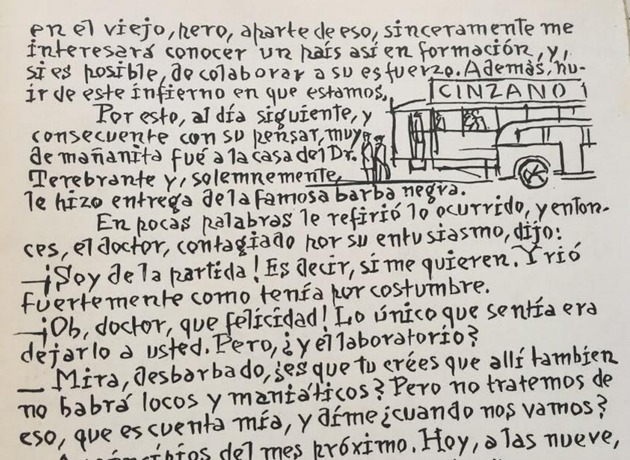 en el viejo, pero, aparte de eso, sinceramente me
interesará conocer un país así en formación, y,
si es posible, de colaborar a su esfuerzo. Además, hu-
ir de este infierno en que estamos.
CINZANO
Por esto, al día siguiente, y
consecuente con su pensar, muy
de mañanita fué a la casa del Dr.
Terebrante y, solemnemente,
le hizo entrega de la famosa barba negra.
En pocas palabras le refirió lo ocurrido, y enton-
ces, el doctor, contagiado por su entusiasmo, dijo:
—¡Soy de la partida! Es decir, si me quieren. Y rió
fuertemente como tenía por costumbre.
—¡Oh, doctor, que felicidad! Lo único que sentía era
dejarlo a usted. Pero, ¿y el laboratorio?
— Mira, desbarbado, ¿es que tu crées que allí tambien
no habrá locos y maniáticos? Pero no tratemos de
eso, que es cuenta mía, y díme ¿cuando nos vamos?
principios del mes próximo. Hoy, a las nueve,